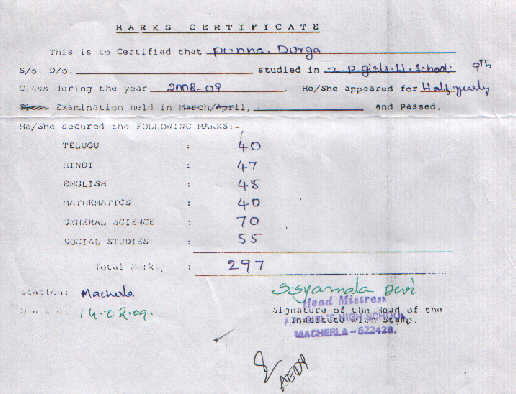 MARKS CERTIFICATE
This is to Certified that Durga
S/o. D/o. studied in 9th
Class during the year 2008-09 He/She appeared for Half yearly
Examination held in March/April, and Passed.
He/She secured the FOLLOWING MARKS:-
TELUGU : 40
HINDI : 47
ENGLISH : 45
MATHEMATICS : 40
GENERAL SCIENCE : 70
SOCIAL STUDIES : 55
Total Marks, : 297
Station: Macherla
14.02.09. S. Syamala Devi
Head Mistress
Signature of the Head of the
Institute with Stamp.
HIGH SCHOOL
MACHERLA - 522426.